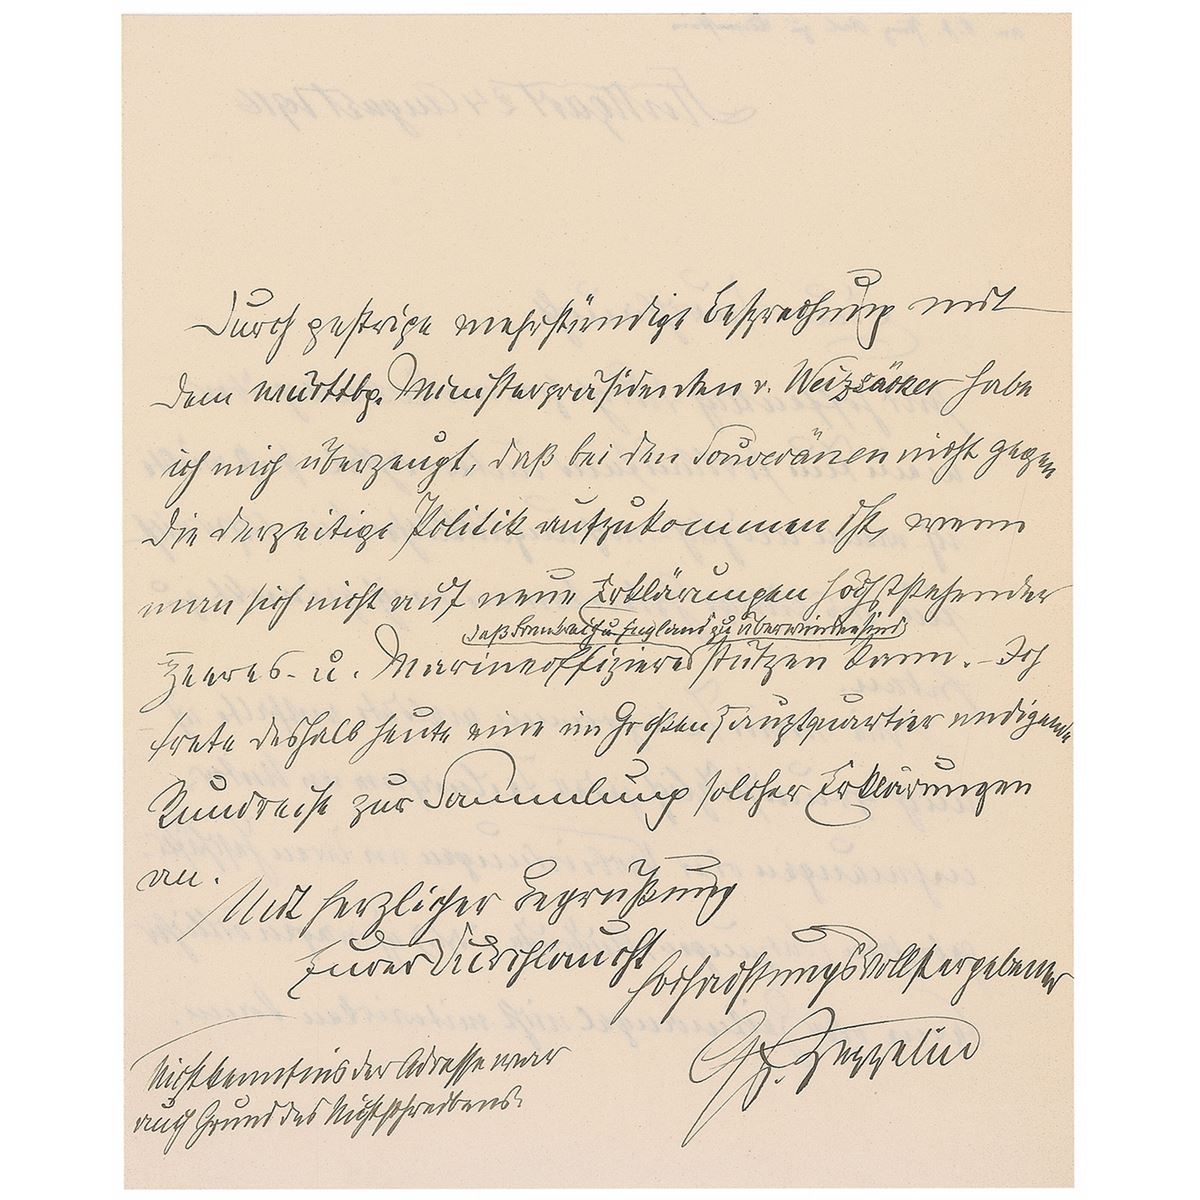 Durch gestrige mehrstündige Besprechung mit
dem württbg. Ministerpräsidenten v. Weizsäcker habe
ich mich überzeugt, daß bei den Souveränen nicht gegen
die derzeitige Politik aufzukommen ist, wenn
man sich nicht auf neue Erklärungen höchststehender
daß Frankreich u England zu überwinden sind
Heeres- u. Marineoffiziere stützen kann. – Ich
trete deshalb heute eine im Großen Hauptquartier endigende
Rundreise zur Sammlung solcher Erklärungen
an.
Mit herzlicher Begrüßung
Eurer Durchlaucht
hochachtungsvollst ergebener
Gf. Zeppelin
Nichtkenntnis der Adresse war
auch Grund des Nichtschreibens.
Stuttgart 24 August 1916